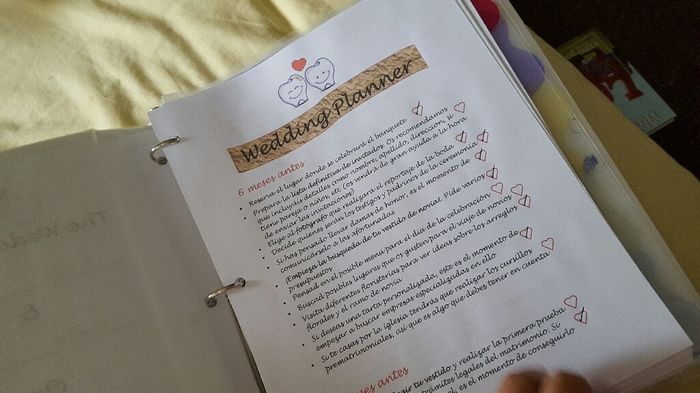 Wedding Planner
6 meses antes
Reserva el lugar donde se celebrará el banquete
Prepara la lista definitiva de invitados. Os recomendamos
que incluyáis detalles como nombre, apellido, dirección, si
tiene pareja o niños, etc (os vendrá de gran ayuda a la hora
de enviar las invitaciones)
Elige al fotógrafo que realizará el reportaje de la boda
Decide quienes serán los testigos y padrinos de la ceremonia
Si has pensado llevar damas de honor, es el momento de
comunicárselo a las afortunadas
¡Empieza la búsqueda de tu vestido de novia!. Pide varios
presupuestos
Pensad en el posible menú para el día de la celebración
Buscad posibles lugares que os gusten para el viaje de novios
Visita diferentes floristerías para ver ideas sobre los arreglos
florales y el ramo de novia
Si deseas una tarta personalizada, este es el momento de
empezar a buscar empresas especializadas en ello
Si te casas por la iglesia tendrás que realizar los cursillos
prematrimoniales, así que es algo que debes tener en cuenta
antes
tu vestido y realizar la primera prueba
trámites legales del matrimonio. Si
es el momento de conseguirlo